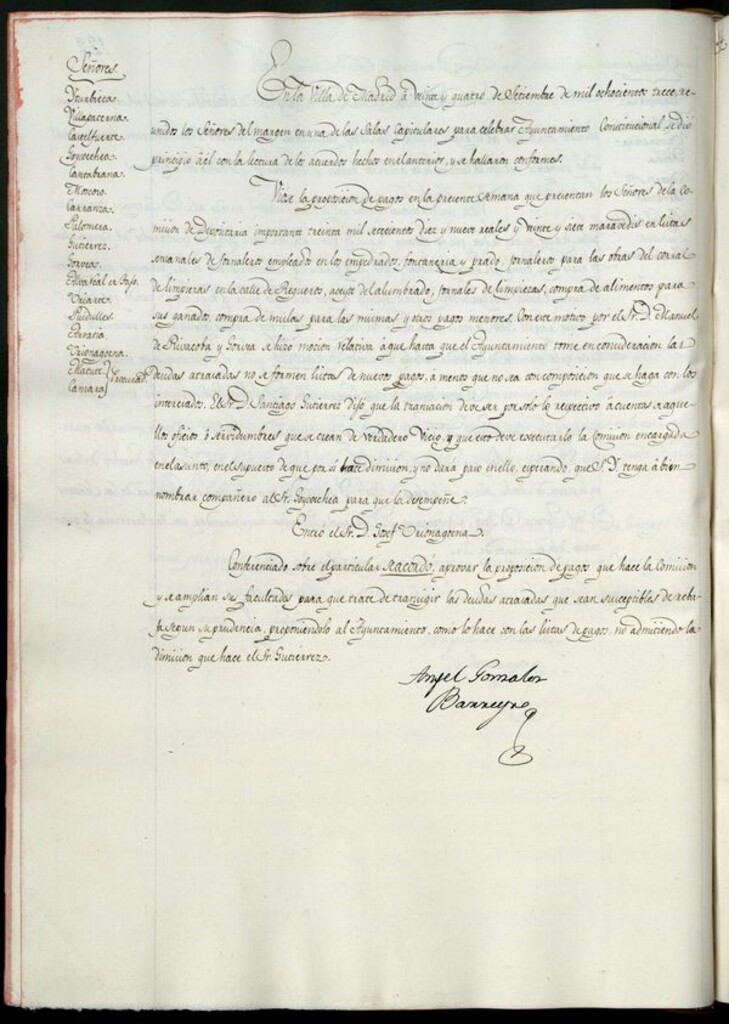 Señores.
Yturbieta.
Villapaterna.
Castelfuerte.
Goycochea.
Cantabrana.
Moscoso.
Carranza.
Palomera.
Gutierrez.
Goroza.
Uriarte.
Arratia.
Urionagoena.
Matute
Camara
En la Villa de Madrid à veinte y quatro de Setiembre de mil ochocientos trece, re-
unidos los Señores del margen en una de las Salas Capitulares para celebrar Ayuntamiento Constitucional, se dió
principio à él con la lectura de los acuerdos hechos en el anterior, y se hallaron conformes.
Viose la proposicion de pagos en la presente semana que presentan los Señores de la Co-
mision de Depositaria importante treinta mil setecientos diez y nueve reales y veinte y siete maravedis en listas
semanales de jornaleros empleados en los empedrados, fontaneria y prado, jornaleros para las obras del corral
de limpiezas en la calle de Regueros, aceyte del alumbrado, jornales de limpiezas, compra de alimentos para
sus ganados, compra de mulas para las mismas y otros pagos menores. Con este motivo por el Sr. D. Manuel
de Rivacoba y Goroza se hizo mocion relativa à que hasta que el Ayuntamiento tome en consideracion las
deudas atrasadas no se formen listas de nuevos pagos, à menos que no sea con composicion que se haga con los
interesados. El Sr. D. Santiago Gutierrez dijo que la transacion debe ser por solo lo respectivo à cuentas de aque-
llos oficios ò servidumbres que se crean de verdadero vicio, y que esto deve executarlo la Comision encargada
en el asunto, en el supuesto de que por si hace dimision, y no dará paso en ello, esperando, que S. S. tenga à bien
nombrar compañero al Sr. Goycochea para que la desempeñe.
Entró el Sr. D. Josef Urionagoena.
Conferenciado sobre el particular se acordó, aprovar la proposicion de pagos que hace la Comision
y se amplian sus facultades para que trate de transigir las deudas atrasadas que sean susceptibles de reba-
ja segun su prudencia, proponiendolo al Ayuntamiento, como lo hace con las listas de pagos, no admitiendo la
dimision que hace el Sr. Gutierrez.
Angel Gonzalez
Barreyro